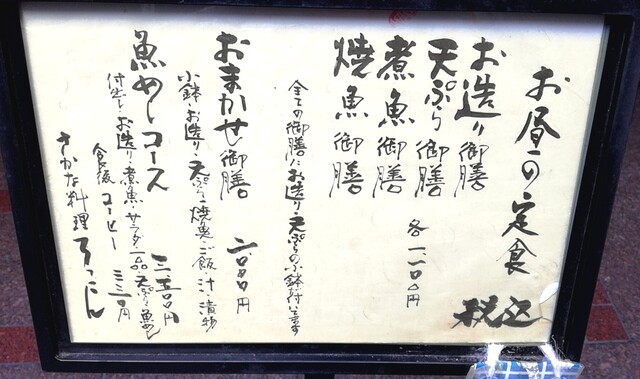 お昼の定食
税込
お造り御膳
天ぷら御膳
煮魚御膳
焼魚御膳
各一、一〇〇円
全ての御膳にお造り・天ぷらの小鉢付きます
おまかせ御膳
二、〇〇〇円
小鉢・お造り・天ぷら・焼魚・ご飯・汁・漬物
魚めしコース
三、五〇〇円
付出し・お造り・煮魚・サラダ・一品・天ぷら・魚めし
食後コーヒー 三三〇円
さかな料理